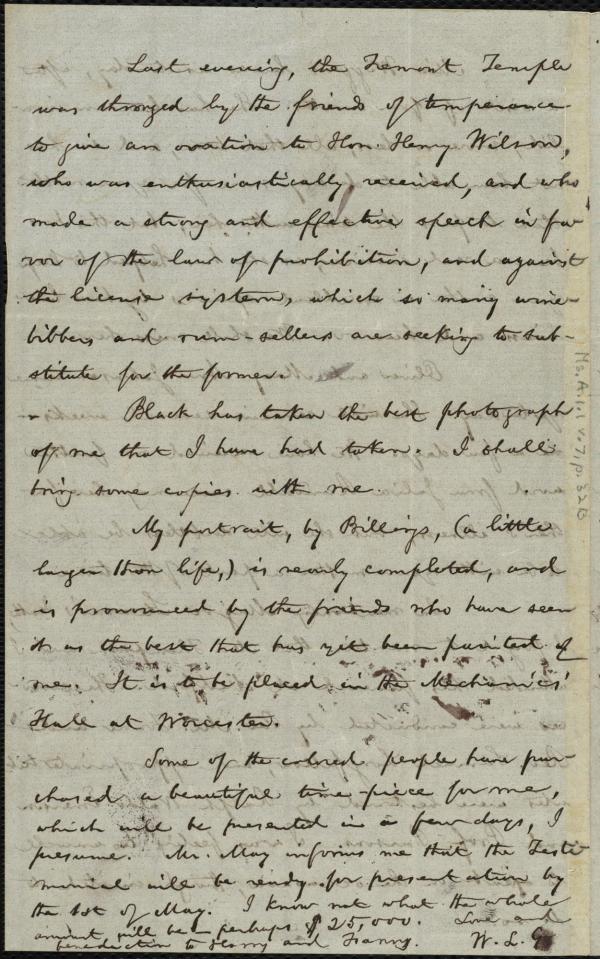 Last evening, the Tremont Temple
was thronged by the friends of temperance
to give an ovation to Hon. Henry Wilson,
who was enthusiastically received, and who
made a strong and effective speech in fa-
vor of the law of prohibition, and against
the license system, which so many wine-
bibbers and rum-sellers are seeking to sub-
stitute for the former.
Black has taken the best photograph
of me that I have had taken. I shall
bring some copies with me.
My portrait, by Billings, (a little
larger than life,) is nearly completed, and
is pronounced by the friends who have seen
it as the best that has yet been painted of
me. It is to be placed in the Mechanics'
Hall at Worcester.
Some of the colored people have pur-
chased a beautiful time-piece for me,
which will be presented in a few days, I
presume. Mr. May informs me that the Testi-
monial will be ready for presentation by
the 1st of May. I know not what the whole
amount will be – perhaps $25,000. Love and
benediction to Harry and Fanny. W. L. G.
Ms. A. 1. 1 v. 7, p. 32B